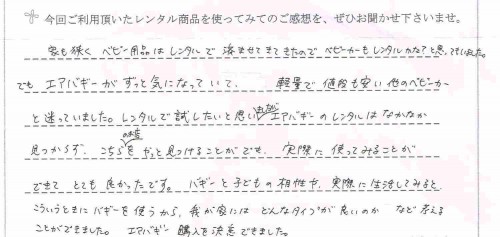 今回ご利用頂いたレンタル商品を使ってみてのご感想を、ぜひお聞かせ下さいませ。
家も狭く ベビー用品は レンタルで 済ませてきてきたので ベビーカーもレンタルかな?と思っていました。
でも エアバギーが ずっと気になっていて、 軽量で 値段も安い 他のベビーカー
と迷っていました。レンタルで試したいと思い エアバギーのレンタルは なかなか
見つからず、こちらの を やっと見つけることができ、実際に 使ってみることが
できて とても 良かったです。バギーと子どもの相性や、実際に生活してみると
こういうときにバギーを使うから、我が家には どんなタイプが良いのか など 考える
ことができました。 エアバギー 購入を決意できました。